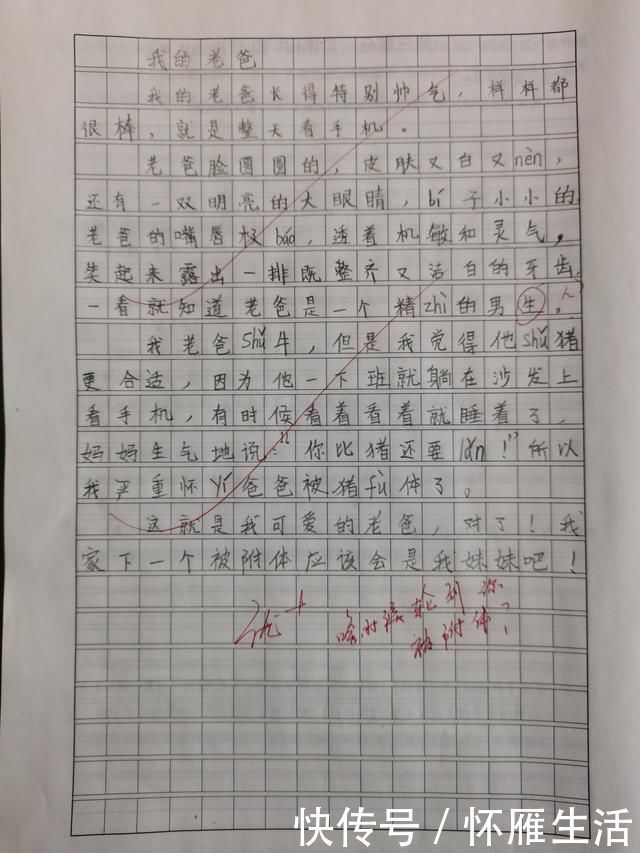 我的老爸
我的老爸长得特别帅气，样样都
很棒，就是整天看手机。
老爸脸圆圆的，皮肤又白又nèn，
还有一双明亮的大眼睛，bí子小小的
老爸的嘴唇极báo，透着机敏和灵气，
笑起来露出一排既整齐又洁白的牙齿，
一看就知道老爸是一个精zhì的男生。人
我老爸shǔ牛，但是我觉得他shǔ猪
更合适，因为他一下班就躺在沙发上
看手机，有时候看着看着就睡着了，
妈妈生气地说：“你比猪还要lǎn！”所以
我严重怀yí爸爸被猪fù体了。
这就是我可爱的老爸，对了！我
家下一个被附体应该会是我妹妹吧！
优+
啥时候轮到你
被附体？
快传号/怀雁生活